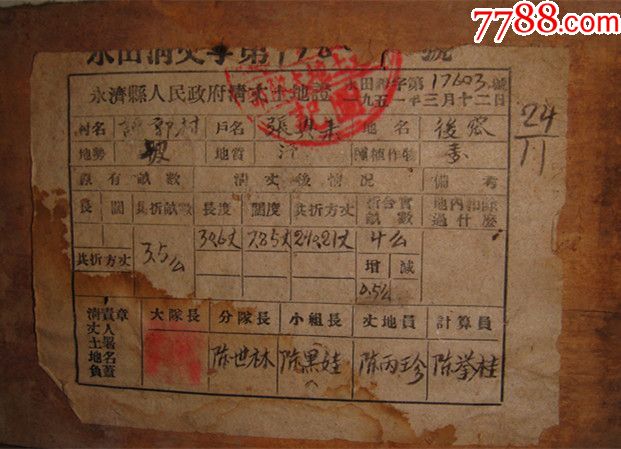 7788.com
永田清丈字第 号
永濟縣人民政府清丈土地證
永田清字第17603號
一九五一年三月十二日
24/11
村名 郭村 戶名 張 地名 後
地勢 坡 地質 種植作物 麦
原有畝數 清丈後情况 備考
長 闊 共折畝數 長度 闊度 共折方丈 折合實畝數 地內扣除過什麼
共折方丈 3.5厶 30.6丈 7.85丈 240.21丈 4厶
增 減
0.5厶
清丈土地負責人署名蓋章 大隊長 分隊長 小組長 丈地員 計算員
陈世林 陈黑娃 陈丙珍 陈举桂